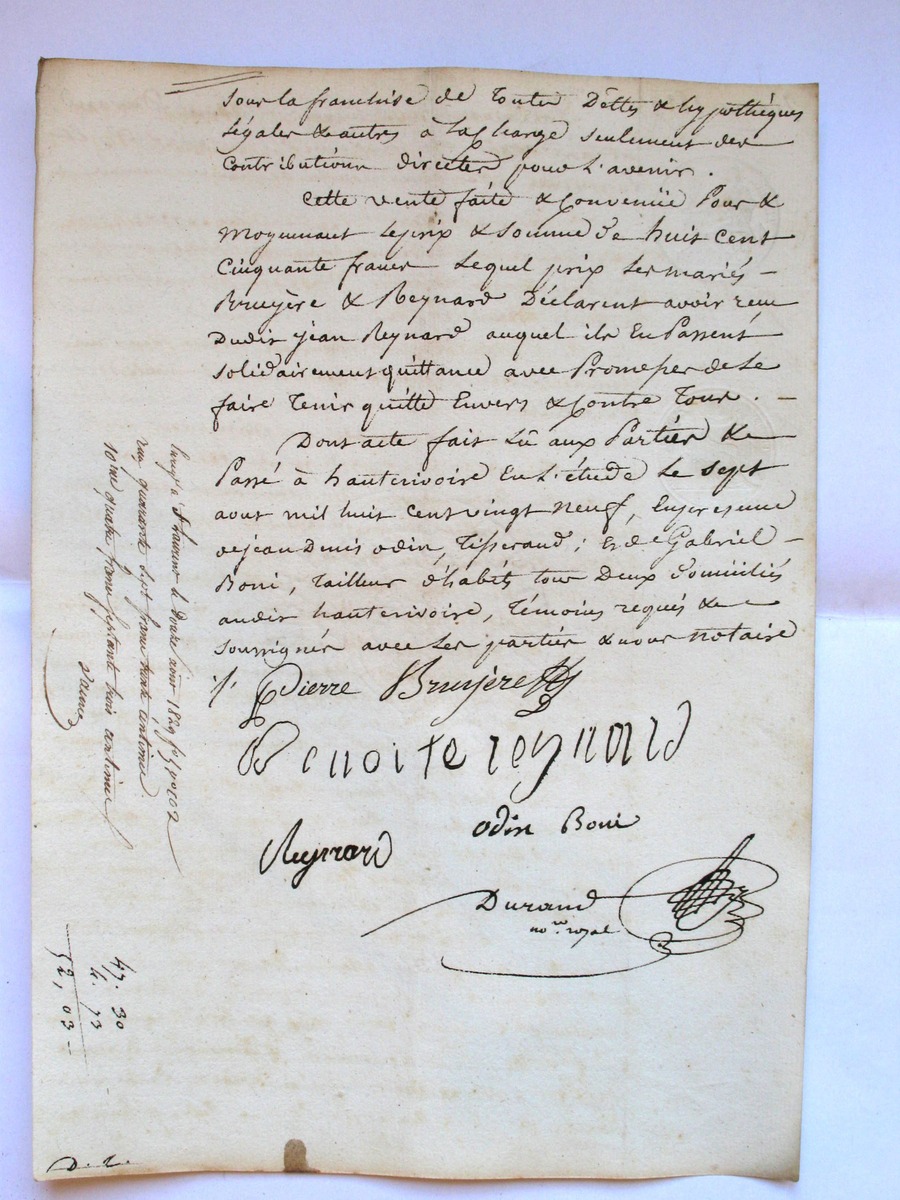 Sous la franchise de toutes Dèttes & hypothèques
Légales & autres à la Charge seulement des
Contributions directes pour l'avenir.
Cette vente faite & Convenüe Pour &
Moyennant le prix & Somme de huit Cent
Cinquante francs lequel prix les mariés -
Bruyère & Reynard Déclarent avoir reçu
Dudit jean Reynard auquel ils En Passent
solidairement quittance avec Promesses de le
faire Tenir quitte Envers & Contre Tous. -
Dont acte fait Lû aux Parties &
Passé à hauterivoire En L'étude le sept
aout mil huit cent vingt neuf, En presence
de jean Denis odin, Tisserand; Et de Gabriel -
Boni, tailleur d'habits tous Deux Domiciliés
audit hauterivoire, Témoins requis &
soussignés avec les parties & nous notaire
Pierre Bruyère
Benoite reynard
Reynard
odin Boni
Durand
no.re royal
Enrg.é à St Laurent le Douze aout 1829 f.°
reçu quarante sept francs trente centimes
10.me quatre francs septante trois centimes
47. 30
4. 73
52, 03 -